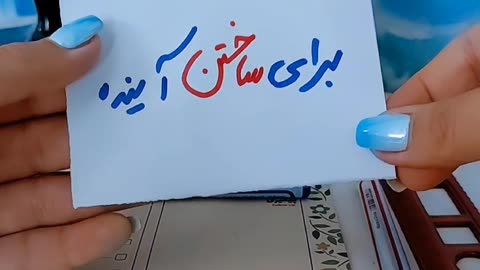 برای ساختن آینده